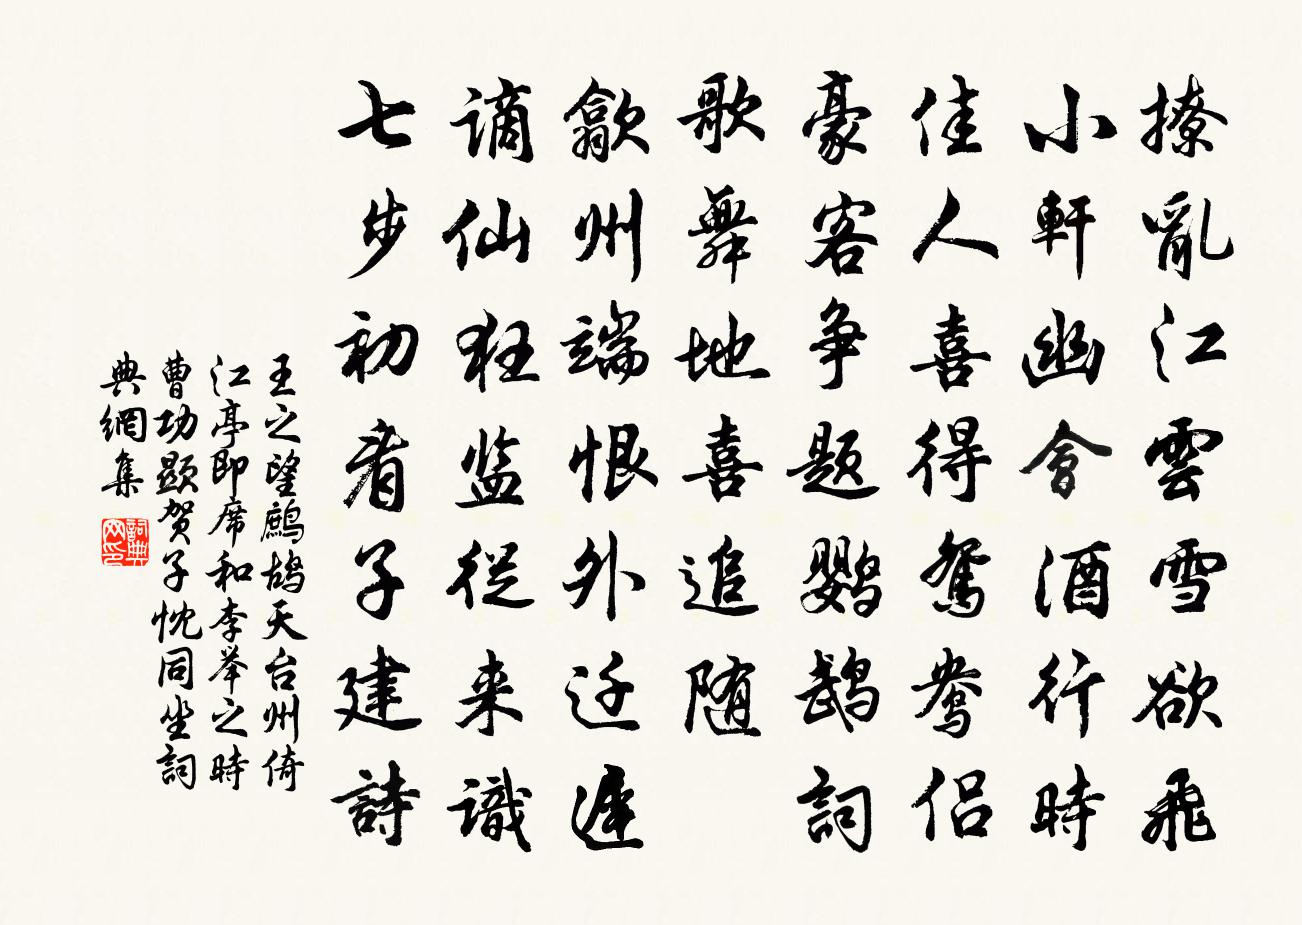 撩亂江雲雪欲飛
小軒幽會酒行時
佳人喜得鴛鴦侶
豪客爭题鸚鵡詞
歌舞地喜追随
歙州端恨外迁遲
謫仙狂监從来識
七步初看子建詩
王之望鷓鴣天台州倚
江亭即席和李举之時
曹功顕贺子忱同坐詞
典網集
詞典网印